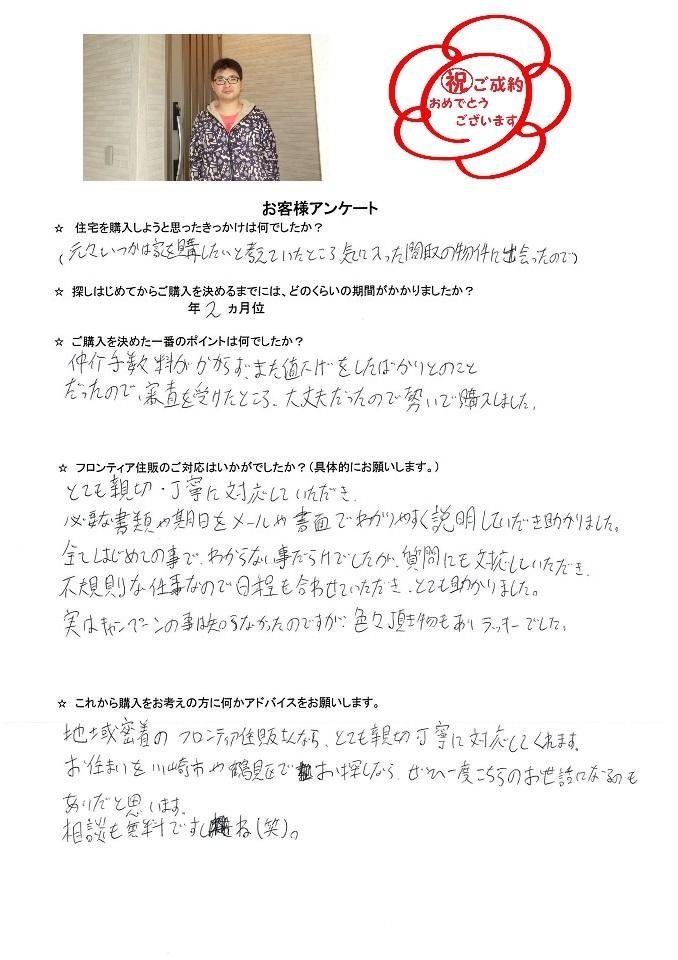 祝ご成約
おめでとう
ございます
お客様アンケート
☆ 住宅を購入しようと思ったきっかけは何でしたか？
(元々いつかは家を購したいと考えていたところ気に入った間取の物件に出会ったので)
☆ 探しはじめてからご購入を決めるまでには、どのくらいの期間がかかりましたか？
年 2 ヵ月位
☆ ご購入を決めた一番のポイントは何でしたか？
仲介手数料がかからず、また値下げをしたばかりとのこと
だったので、審査を受けたところ、大丈夫だったので勢いで購入しました。
☆ フロンティア住販のご対応はいかがでしたか？（具体的にお願いします。）
とても親切・丁寧に対応していただき、
必要な書類や期日をメールや書面でわかりやすく説明していただき助かりました。
全てはじめての事で、わからない事だらけでしたが、質問にも対応していただき、
不規則な仕事なので日程も合わせていただき、とても助かりました。
実はキャンペーンの事は知らなかったのですが、色々頂き物もありラッキーでした。
☆ これから購入をお考えの方に何かアドバイスをお願いします。
地域密着のフロンティア住販さんなら、とても親切丁寧に対応してくれます。
お住まいを川崎市や鶴見区でお探しなら、ぜひ一度こちらのお世話になるのも
ありだと思います。
相談も無料ですしね(笑)。